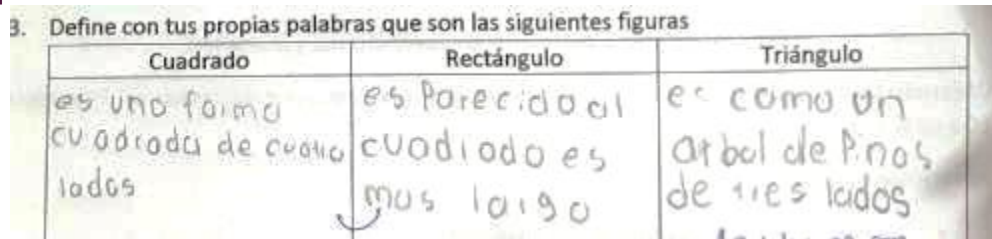 3. Define con tus propias palabras que son las siguientes figuras
Cuadrado Rectángulo Triángulo
es una forma
cuadrada de cuatro
lados
es Parecido al
cuadrado es
mas largo
es como un
arbol de Pinos
de tres lados